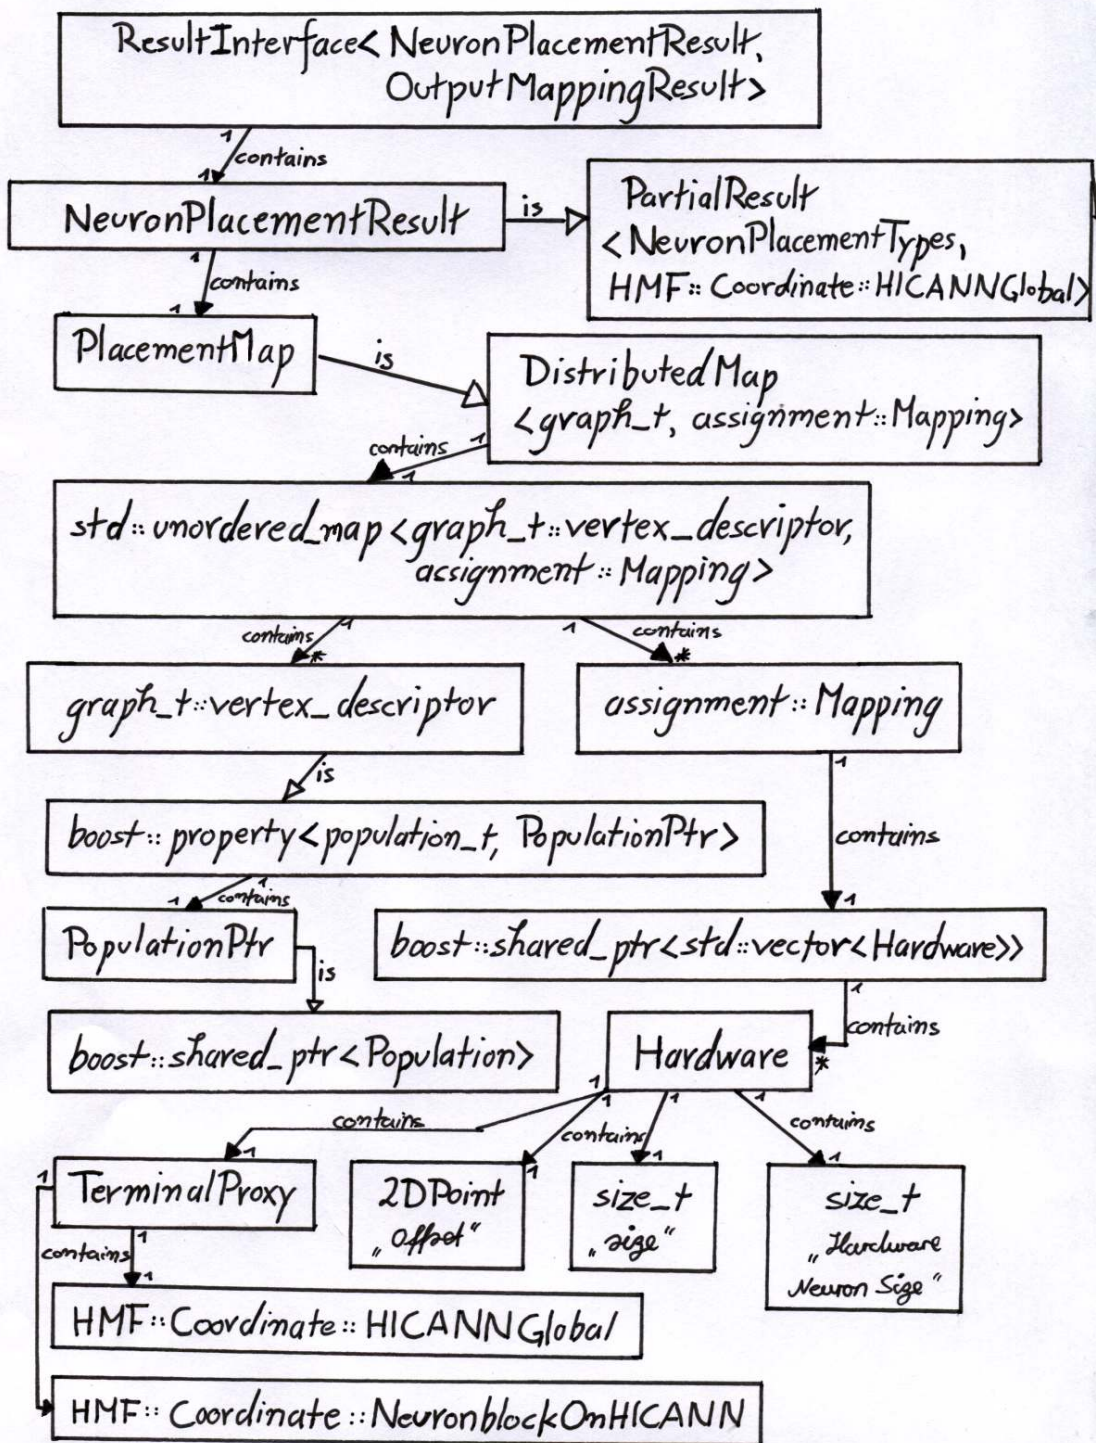 ResultInterface< NeuronPlacementResult,
OutputMappingResult>
1
contains
1
NeuronPlacementResult
is
PartialResult
<NeuronPlacementTypes,
HMF::Coordinate::HICANNGlobal>
1
contains
1
PlacementMap
is
DistributedMap
<graph_t, assignment::Mapping>
1
contains
1
std::unordered_map<graph_t::vertex_descriptor,
assignment::Mapping>
contains 1
*
1 contains
*
graph_t::vertex_descriptor
assignment::Mapping
is
1
contains
1
boost::property<population_t, PopulationPtr>
1
contains
1
PopulationPtr
is
boost::shared_ptr<std::vector<Hardware>>
1
contains
*
boost::shared_ptr<Population>
Hardware
1 1 1 1
contains
contains
contains
1 1 1 1
1
TerminalProxy
2DPoint
„Offset“
size_t
„size“
size_t
„Hardware
Neuron Size“
contains
1
1
HMF::Coordinate::HICANNGlobal
HMF::Coordinate::NeuronblockOnHICANN